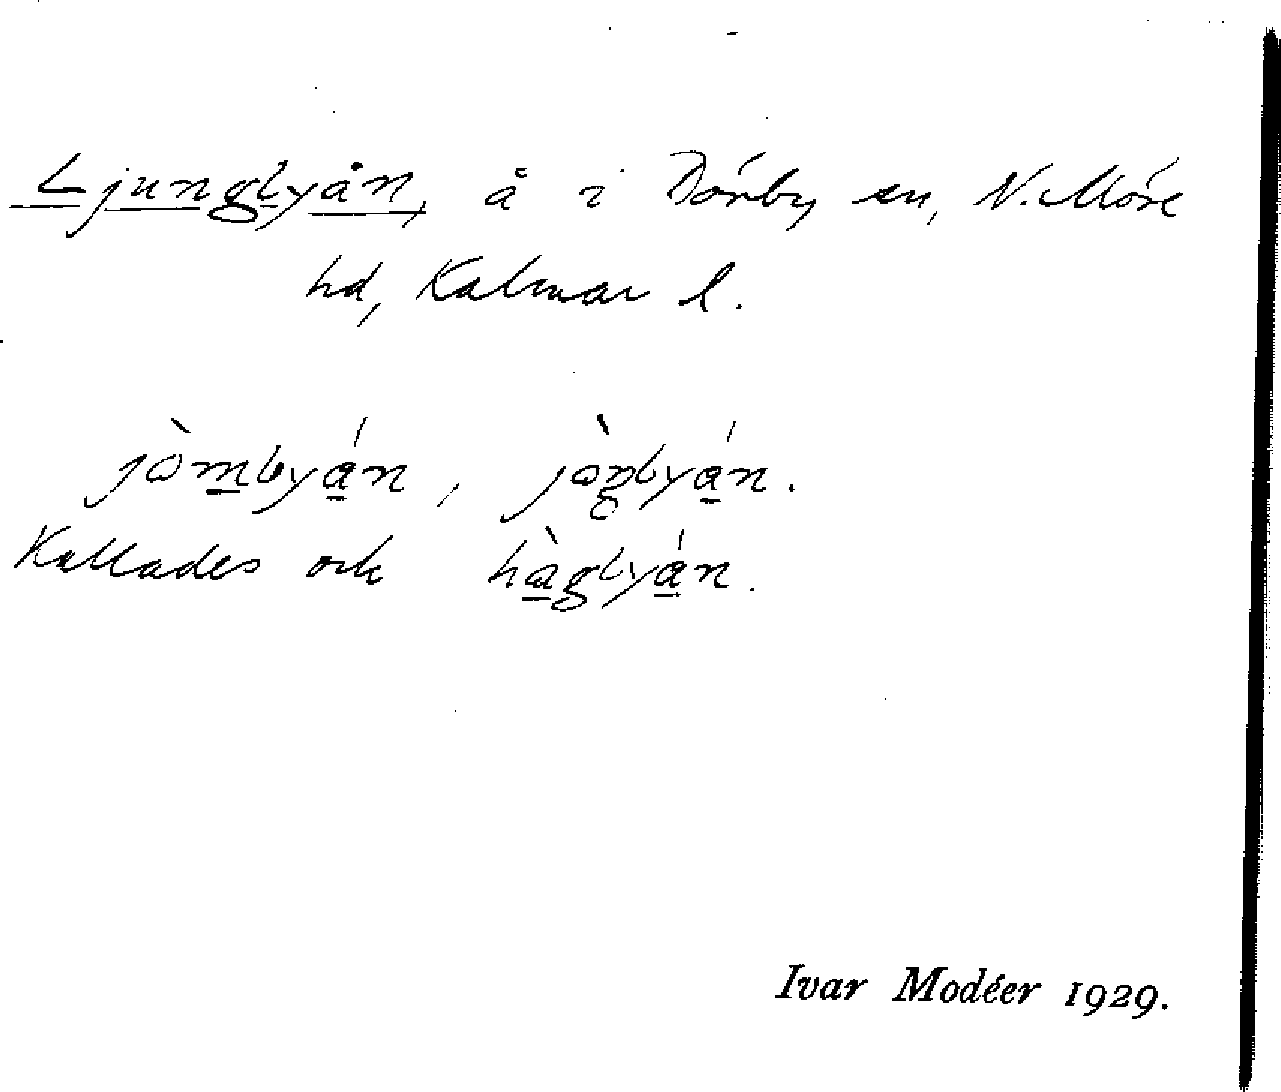 Ljungbyån, å i Dörby sn, N. Möre
hd, Kalmar l.
jòmbyán, jòŋbyán.
Kallades ock hàgbyán.
Ivar Modéer 1929.